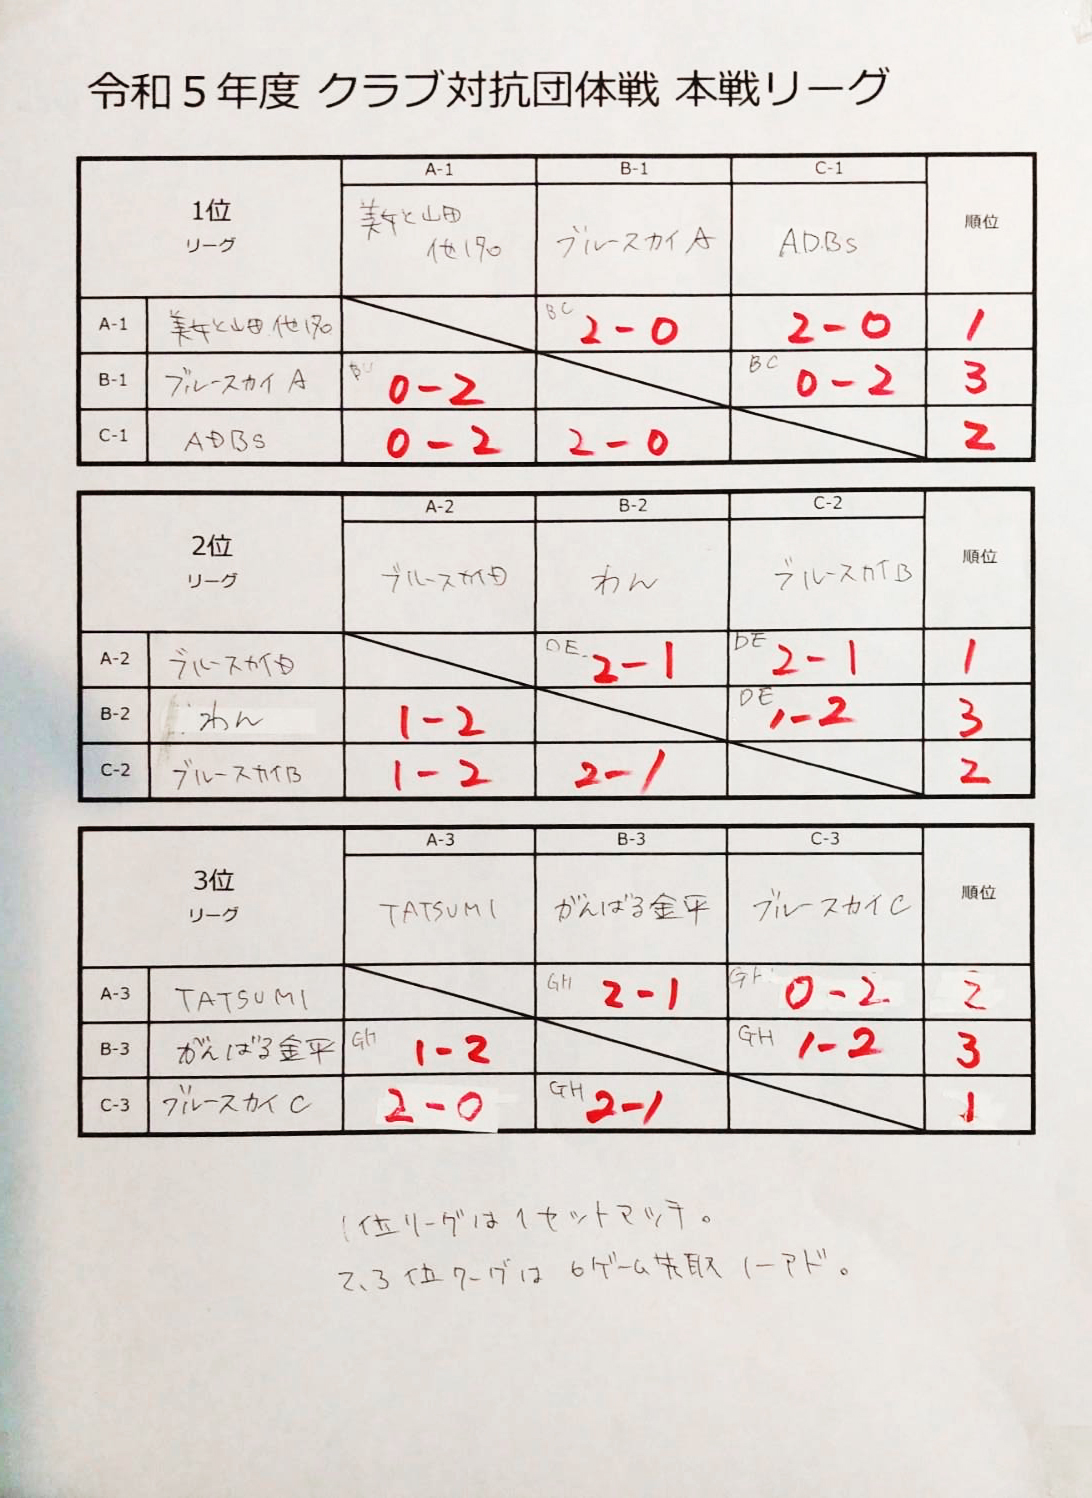 令和５年度 クラブ対抗団体戦 本戦リーグ
1位
リーグ
A-1
B-1
C-1
順位
美女と山田
他170
ブルースカイA
A.D.B.s
A-1
美女と山田 他170
BC 2-0
2-0
1
B-1
ブルースカイ A
0-2
BC 0-2
3
C-1
ADBs
0-2
2-0
2
2位
リーグ
A-2
B-2
C-2
順位
ブルースカイD
わん
ブルースカイB
A-2
ブルースカイD
DE 2-1
DE 2-1
1
B-2
わん
1-2
DE 1-2
3
C-2
ブルースカイB
1-2
2-1
2
3位
リーグ
A-3
B-3
C-3
順位
TATSUMI
がんばる金平
ブルースカイC
A-3
TATSUMI
GH 2-1
0-2
2
B-3
がんばる金平
GH 1-2
GH 1-2
3
C-3
ブルースカイC
2-0
GH 2-1
1
1位リーグは1セットマッチ。
2、3位リーグは 6ゲーム先取 ノーアド。